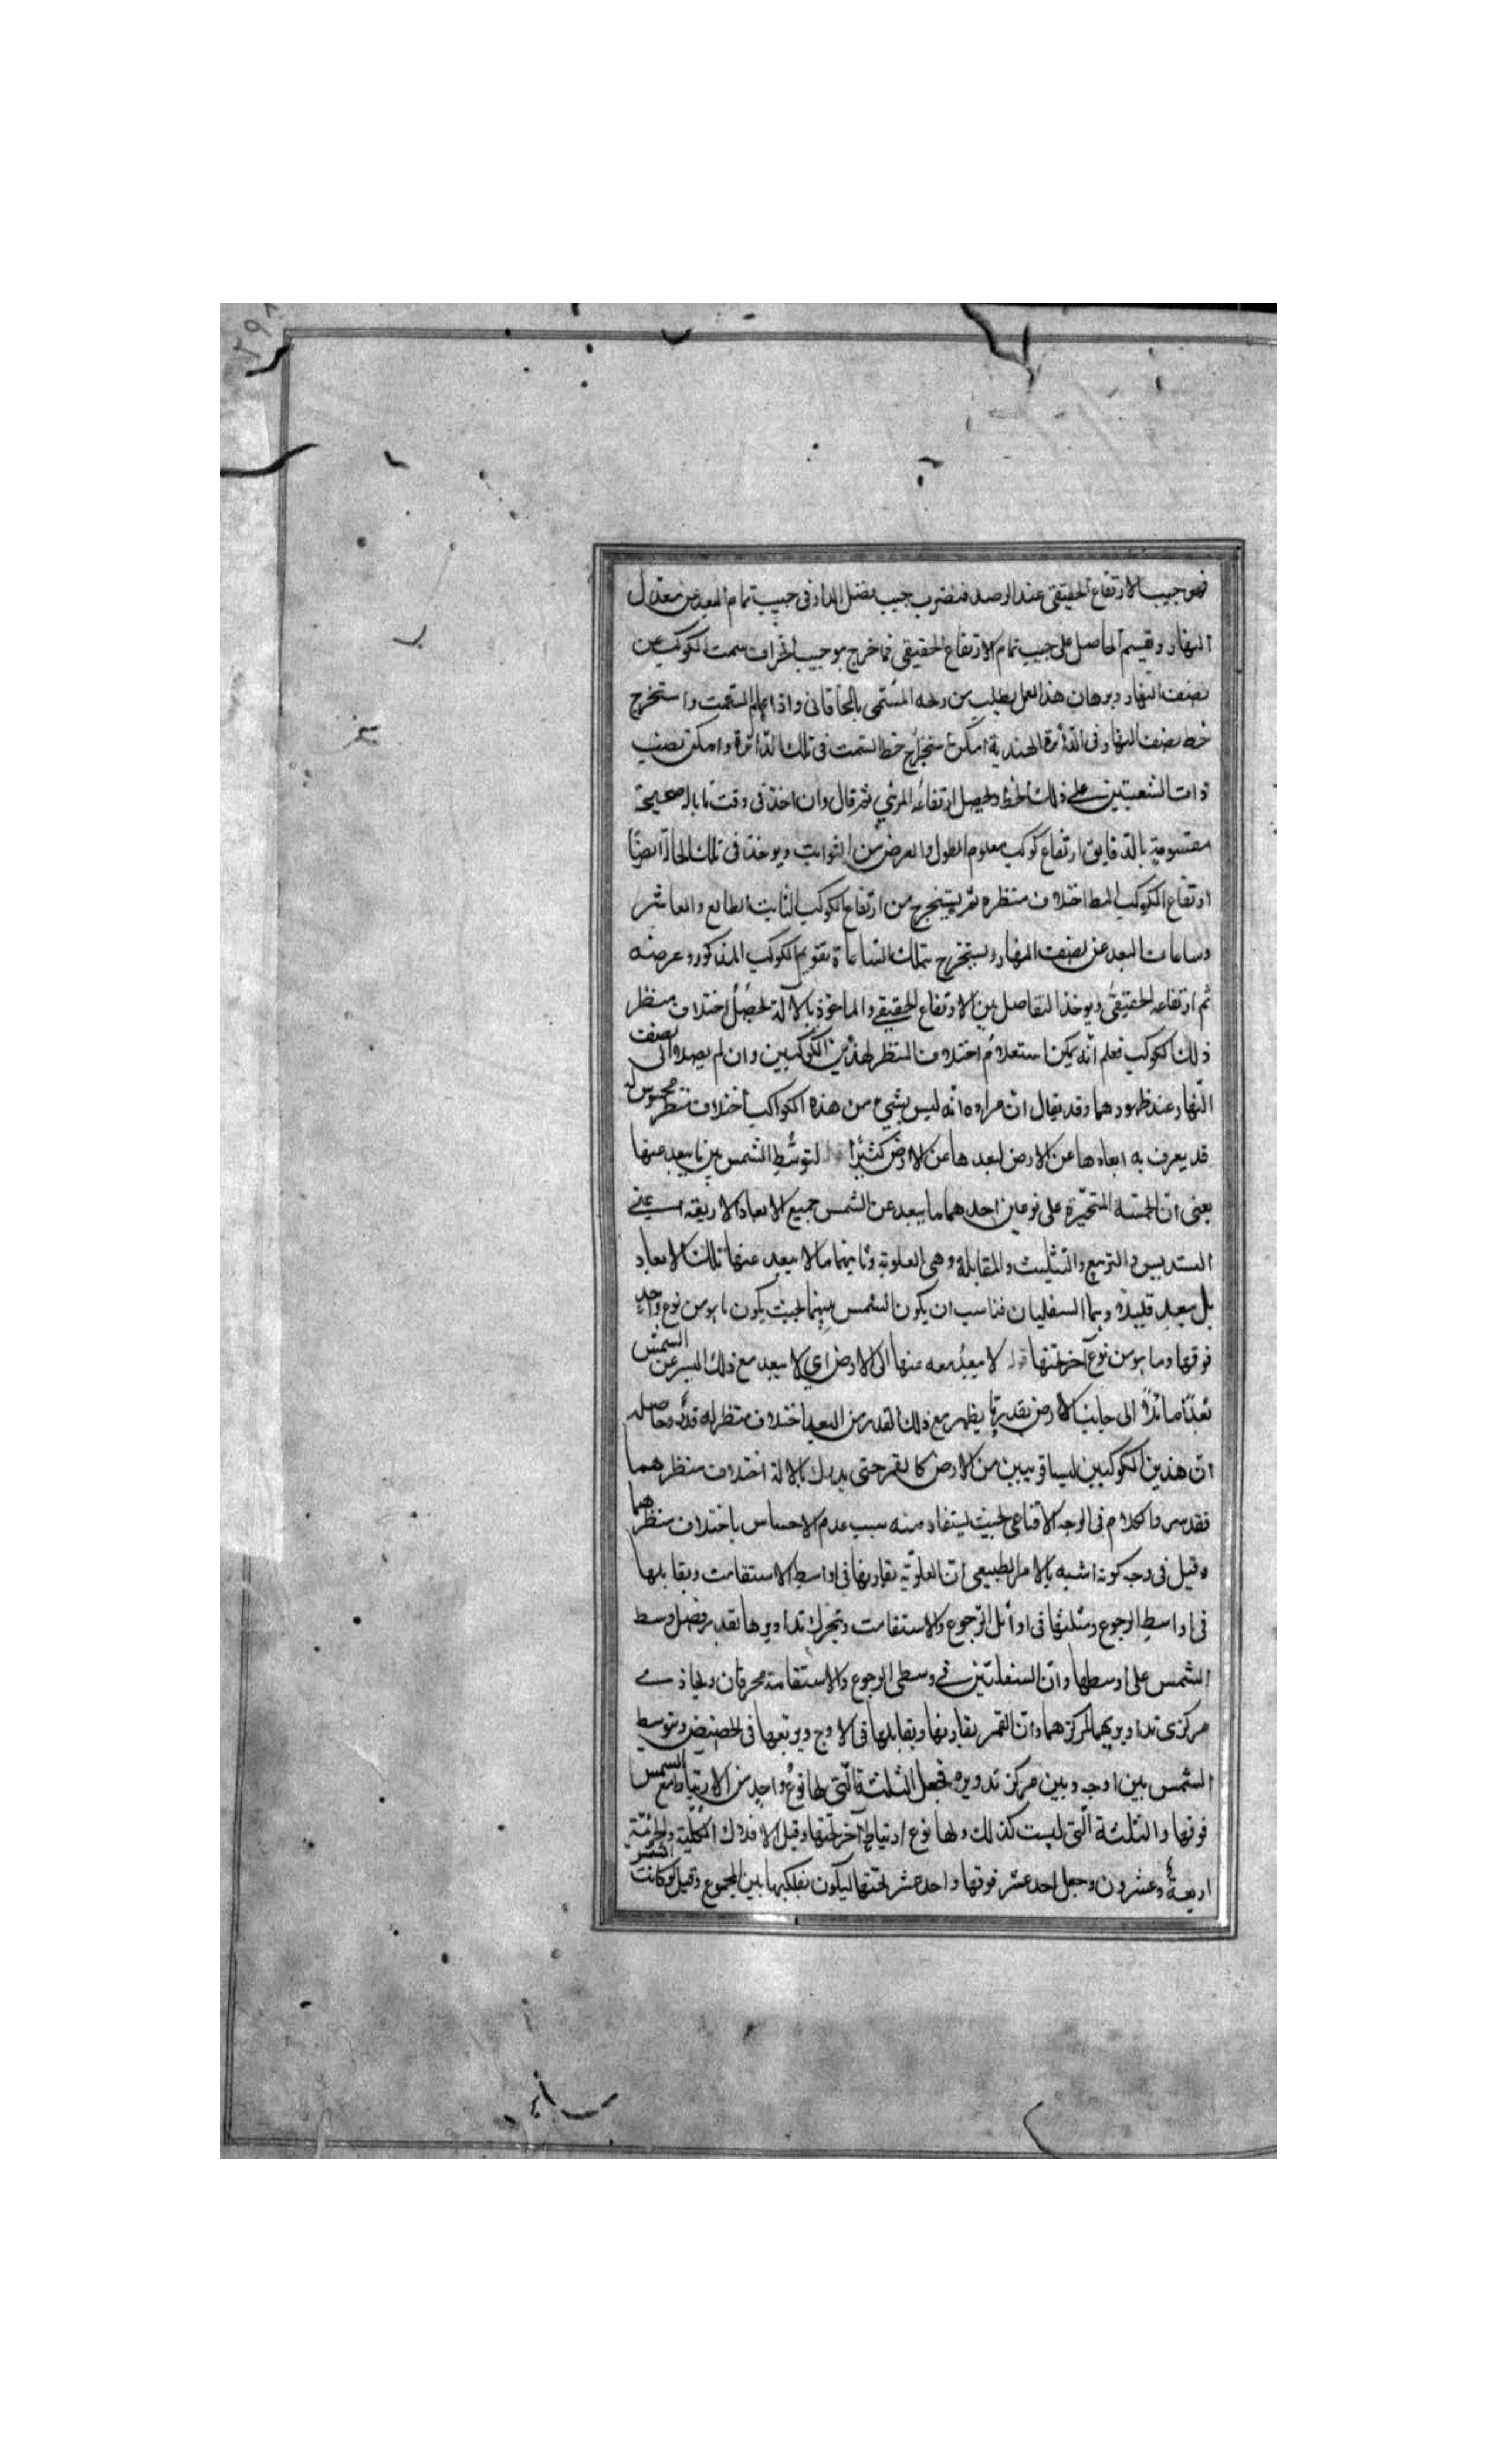 فهو جيب الارتفاع الحقيقى عند الرصد فنضرب جيب فضل الدائر فى جيب تمام البعد عن معدل
النهار ونقسم الحاصل على جيب تمام الارتفاع الحقيقى فما خرج هو جيب انحراف سمت الكوكب عن
نصف النهار وبرهان هذا العمل يطلب من زيجه المسمى بالخاقانى واذا علم السمت واستخرج
خط نصف النهار فى الدائرة الهندية امكن استخراج خط السمت فى تلك الدائرة وامكن نصب
ذات الشعبتين على ذلك الخط وتحصيل ارتفاعه المرئي ثم قال وان اخذ فى وقت ما بالة صحيحة
مقسومة بالدقايق ارتفاع كوكب معلوم الطول والعرض من الثوابت ويوخذ فى تلك الحالة ايضا
ارتفاع الكوكب المط اختلاف منظره ثم يستخرج من ارتفاع الكوكب الثابت الطالع والعاشر
وساعات البعد عن نصف النهار ويستخرج بتلك الساعاة تقويم الكوكب المذكور وعرضه
ثم ارتفاعه الحقيقى ويوخذ التفاضل بين الارتفاع الحقيقي والماخوذ بالالة لحصل اختلاف منظر
ذلك الكوكب فعلم انه يمكن استعلام اختلاف المنظر لهذين الكوكبين وان لم يصلا الى نصف
النهار عند ظهورهما وقد يقال ان مراده انه ليس بشيء من هذه الكواكب اختلاف منظر محسوس له
قد يعرف به ابعادها عن الارض لبعدها عن الارض كثيرا لتوسط الشمس بين ما يبعد عنها
يعنى ان الخمسة المتحيرة على نوعين احدهما ما يبعد عن الشمس جميع الابعاد الاربعة اعني
التسديس والتربيع والتثليث والمقابلة وهى العلوية وثانيهما ما لا يبعد عنها تلك الابعاد
بل يبعد قليلا وهما السفليان فناسب ان يكون الشمس بينهما بحيث يكون ما هو من نوع واحد
فوقها وما هو من نوع آخر تحتها قوله لا يبعد معه عنها الى الارض اي لا يبعد مع ذلك البسر عن الشمس
بعدا مائلا الى جانب الارض بقدر ما يظهر مع ذلك القدر من البعد اختلاف منظر له قدر وحاصله
ان هذين الكوكبين ليسا قريبين من الارض كالقمر حتى يدرك بالالة اختلاف منظرهما
فقد الكلام فى الوجه الاقناعى بحيث يستفاد منه سبب عدم الاحساس باختلاف منظرهما
وقيل فى وجه كونه اشبه بالامر الطبيعى ان العلوية تقارنها فى اواسط الاستقامت وتقابلها
فى اواسط الرجوع وتثلثها فى اوائل الرجوع والاستقامت وتحرك تداويرها بقدر فضل وسط
الشمس على اوسطها وان السفليين في وسطى الرجوع والاستقامة محرقان وتحاذي
مركزى تداويريهما لمركزهما وان القمر يقارنها ويقابلها فى الاوج ويربعها فى الحضيض وتتوسط
الشمس بين اوجه وبين مركز تدويره فجعل الثلثة التى لها نوع واحد من الارتباط مع الشمس
فوقها والثلثة التى ليست كذلك ولها نوع ارتباط آخر تحتها وقيل الافلاك الكلية والجزئية
اربعة وعشرون وجعل احد عشر فوقها واحد عشر تحتها ليكون بفلكيها بين المجموع وقيل لو كانت الشمس